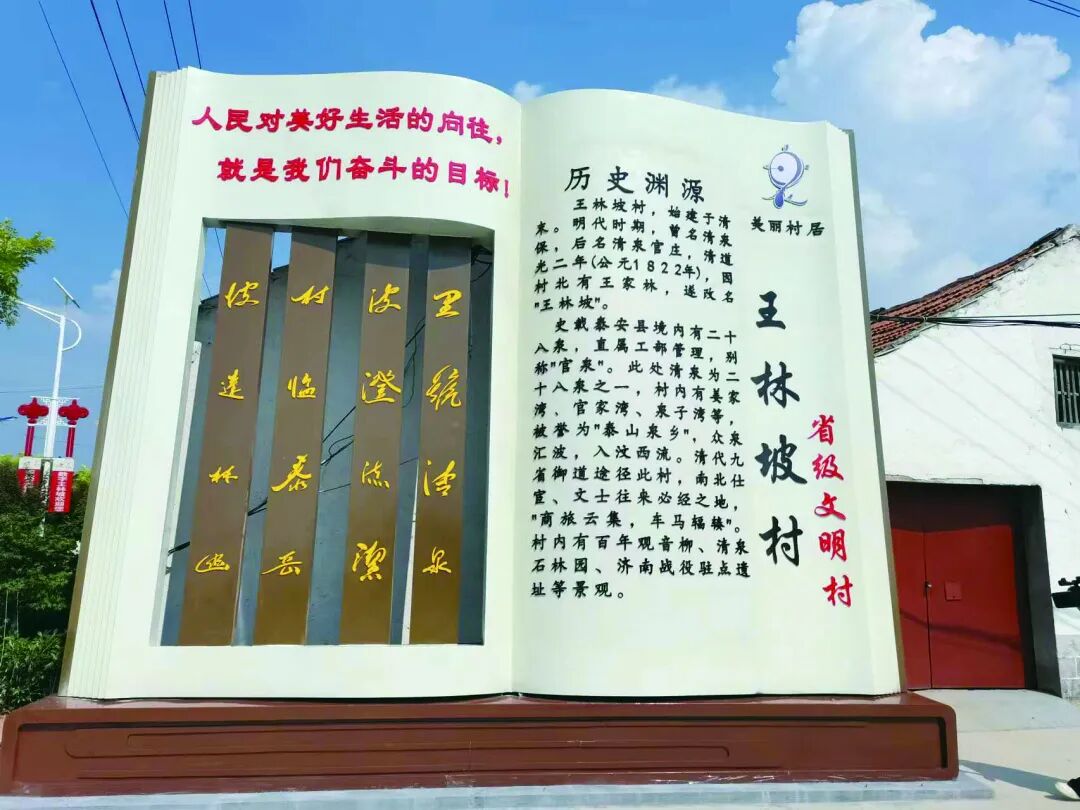 人民对美好生活的向往,
就是我们奋斗的目标!
里號清泉
波澄流潔
村临泰岳
坡林幽
历史渊源
王林坡村，始建于清
末。明代时期，曾名清泉
保，后名清泉官庄，清道
光二年(公元1822年)，因
村北有王家林，遂改名
"王林坡"。
史载泰安县境内有二十
八泉，直属工部管理，别
称"官泉"。此处清泉为二
十八泉之一，村内有姜家
湾、官家湾、泉子湾等，
被誉为"泰山泉乡"，众泉
汇波，入汶西流。清代九
省御道途径此村，南北仕
宦、文士往来必经之地，
"商旅云集，车马辐辏"。
村内有百年观音柳、清泉
石林园、济南战役驻点遗
址等景观。
美丽村居
王林坡村
省级文明村